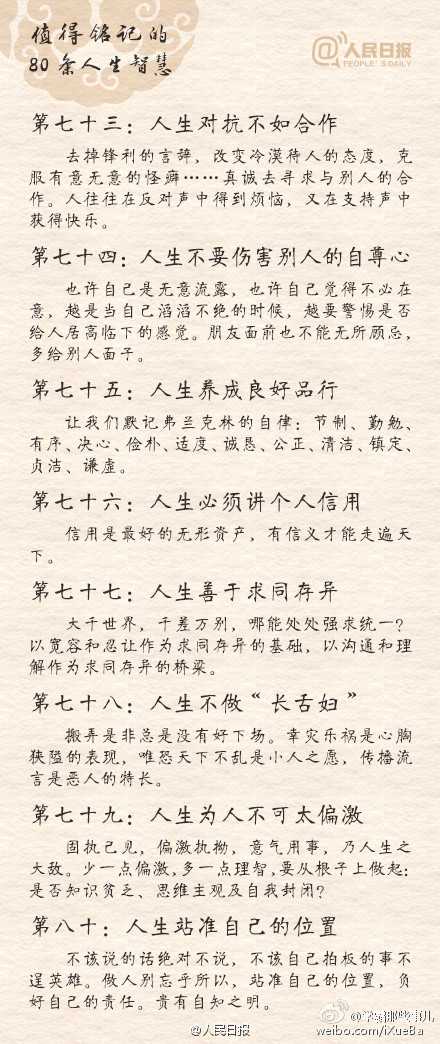 值得铭记的
80条人生智慧
@人民日报
PEOPLE'S DAILY
第七十三：人生对抗不如合作
去掉锋利的言辞，改变冷漠待人的态度，克
服有意无意的怪癖……真诚去寻求与别人的合
作。人往往在反对声中得到烦恼，又在支持声中
获得快乐。
第七十四：人生不要伤害别人的自尊心
也许自己是无意流露，也许自己觉得不必在
意，越是当自己滔滔不绝的时候，越要警惕是否
给人居高临下的感觉。朋友面前也不能无所顾忌，
多给别人面子。
第七十五：人生养成良好品行
让我们默记弗兰克林的自律：节制、勤勉、
有序、决心、俭朴、适度、诚恳、公正、清洁、镇定、
贞洁、谦虚。
第七十六：人生必须讲个人信用
信用是最好的无形资产，有信义才能走遍天
下。
第七十七：人生善于求同存异
大千世界，千差万别，哪能处处强求统一？
以宽容和忍让作为求同存异的基础，以沟通和理
解作为求同存异的桥梁。
第七十八：人生不做“长舌妇”
搬弄是非总是没有好下场。幸灾乐祸是心胸
狭隘的表现，唯恐天下不乱是小人之愿，传播流
言是恶人的特长。
第七十九：人生为人不可太偏激
固执己见，偏激执拗，意气用事，乃人生之
大敌。少一点偏激，多一点理智，要从根子上做起：
是否知识贫乏、思维主观及自我封闭？
第八十：人生站准自己的位置
不该说的话绝对不说，不该自己拍板的事不
逞英雄。做人别忘乎所以，站准自己的位置，负
好自己的责任。贵有自知之明。
@人民日报
weibo.com/iXueBa